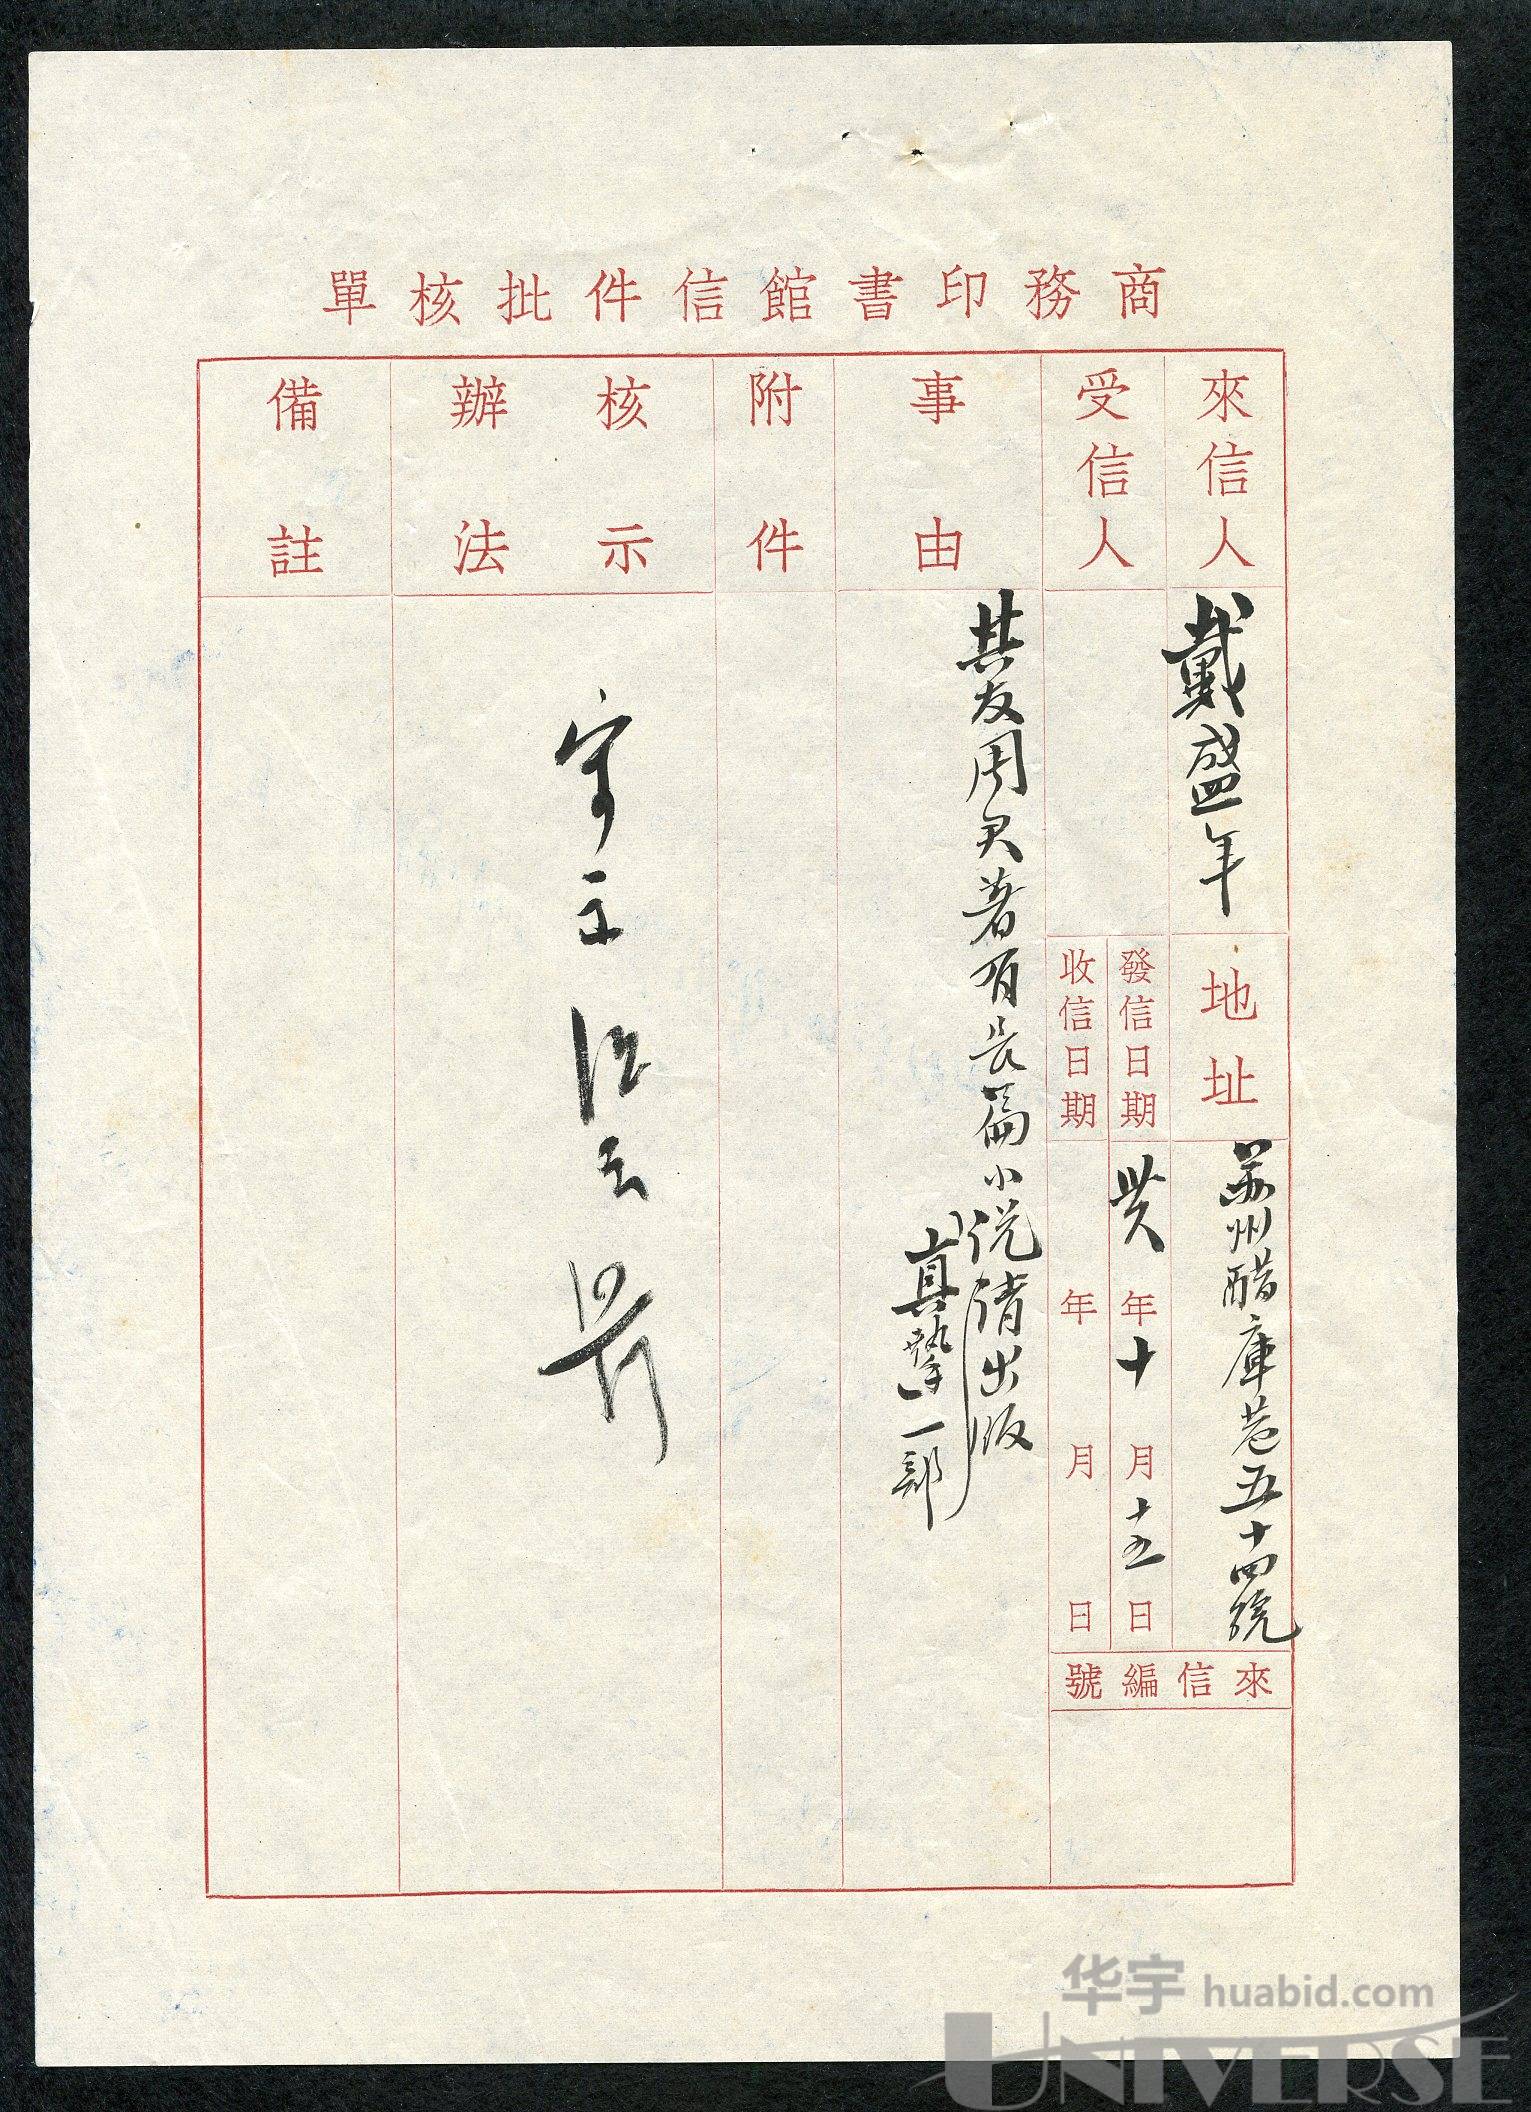 商務印書館信件批核單
來信人
戴盛年
地址
苏州醋庫巷五十四號
來信編號
受信人
發信日期
年十月十五日
收信日期
年月日
事由
其友周君著有長篇小说请出版
真摯一部
附件
核示辦法
備註
华宇 huabid.com
UNIVERSE